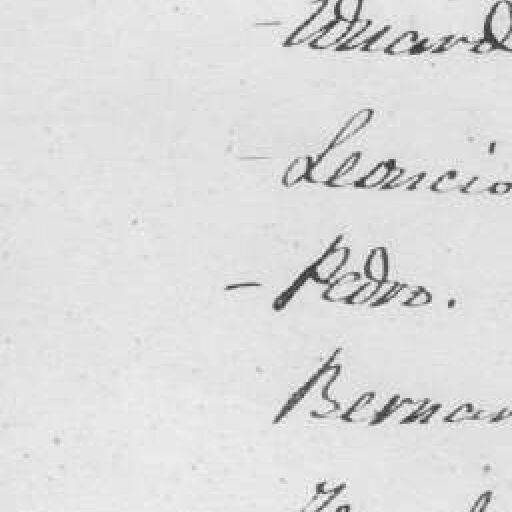 - Eduard
- Leoncio
- Pedro.
Bernar